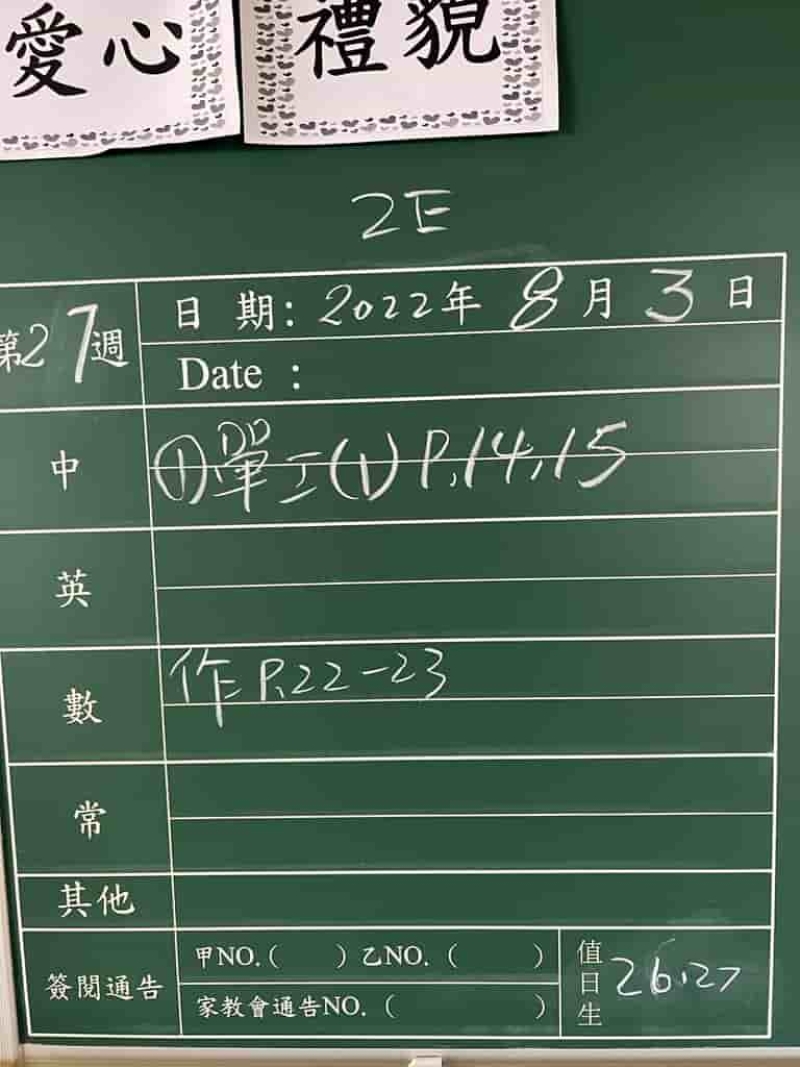 愛心
禮貌
2E
第27週
日 期: 2022年 8月3日
Date :
中
①單工(1) P.14,15
英
數
作 P.22-23
常
其他
簽閱通告
甲NO.( ) 乙NO. ( )
家教會通告NO. ( )
值日生
26,27